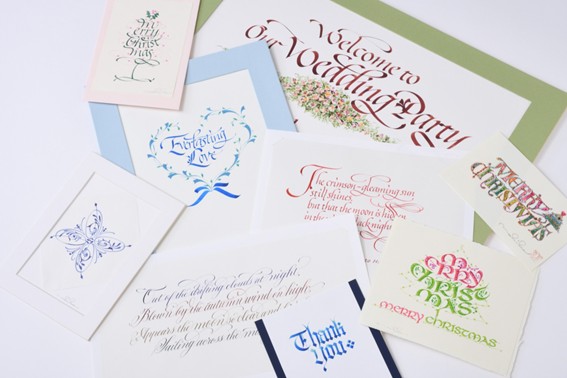 Merry
Christ
mas
Welcome to
Our Wedding Party
Everlasting
Love
The crimson-gleaming sun
still shines
but that the moon is
in the night
MERRY
CHRISTMAS
Out of the drifting clouds at night,
Blown by the autumn wind on high,
Appears the moon so clear and
Sailing across the
Thank
You
ME
RRY
CHRIST
MAS
MERRY CHRISTMAS